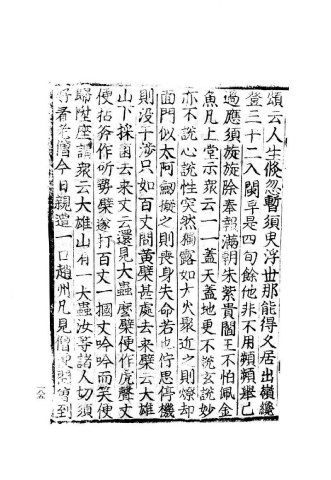 頌云人生倐忽暫須臾浮世那能得久居出嶺纔
登三十二入閩早是四旬餘他非不用頻頻舉己
過應須旋旋除奉報滿朝朱紫貴閻王不怕佩金
魚凡上堂示衆云一一蓋天蓋地更不說玄說妙
亦不說心說性突然獨露如大火聚近之則燎却
面門似太阿劔擬之則喪身失命若也佇思停機
則没干涉只如百丈問黄檗甚處去來檗云大雄
山下採菌去來丈云還見大蟲麽檗便作虎聲丈
便拈斧作斫勢檗遂打百丈一摑丈吟吟而笑便
歸陞座謂衆云大雄山有一大蟲汝等諸人切須
好看老僧今日親遭一口趙州凡見僧便問曾到